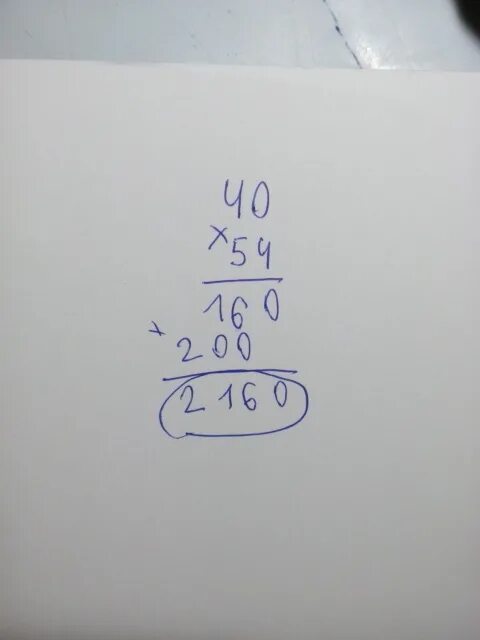 40
×
54
160
+
200
2160